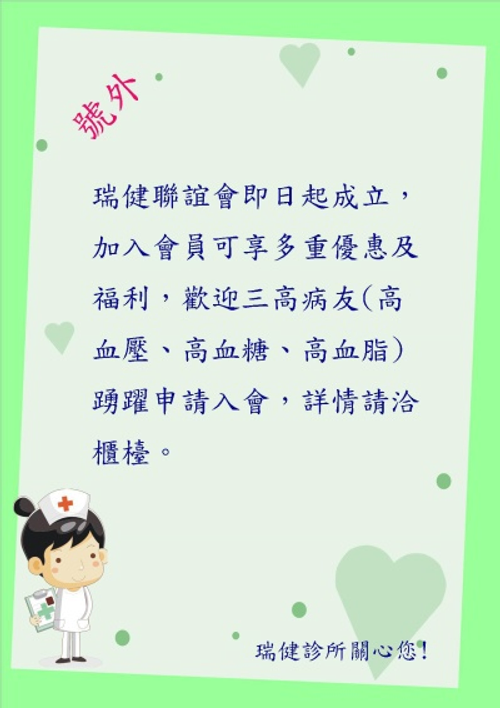 號外
瑞健聯誼會即日起成立，
加入會員可享多重優惠及
福利，歡迎三高病友(高
血壓、高血糖、高血脂)
踴躍申請入會，詳情請洽
櫃檯。
瑞健診所關心您!